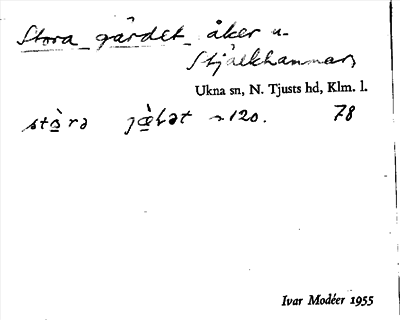 Stora gärdet åker u.
Stjälkhammar,
Ukna sn, N. Tjusts hd, Klm. l.
stò̱rə jæ̱̀ɫət 120. 78
Ivar Modéer 1955